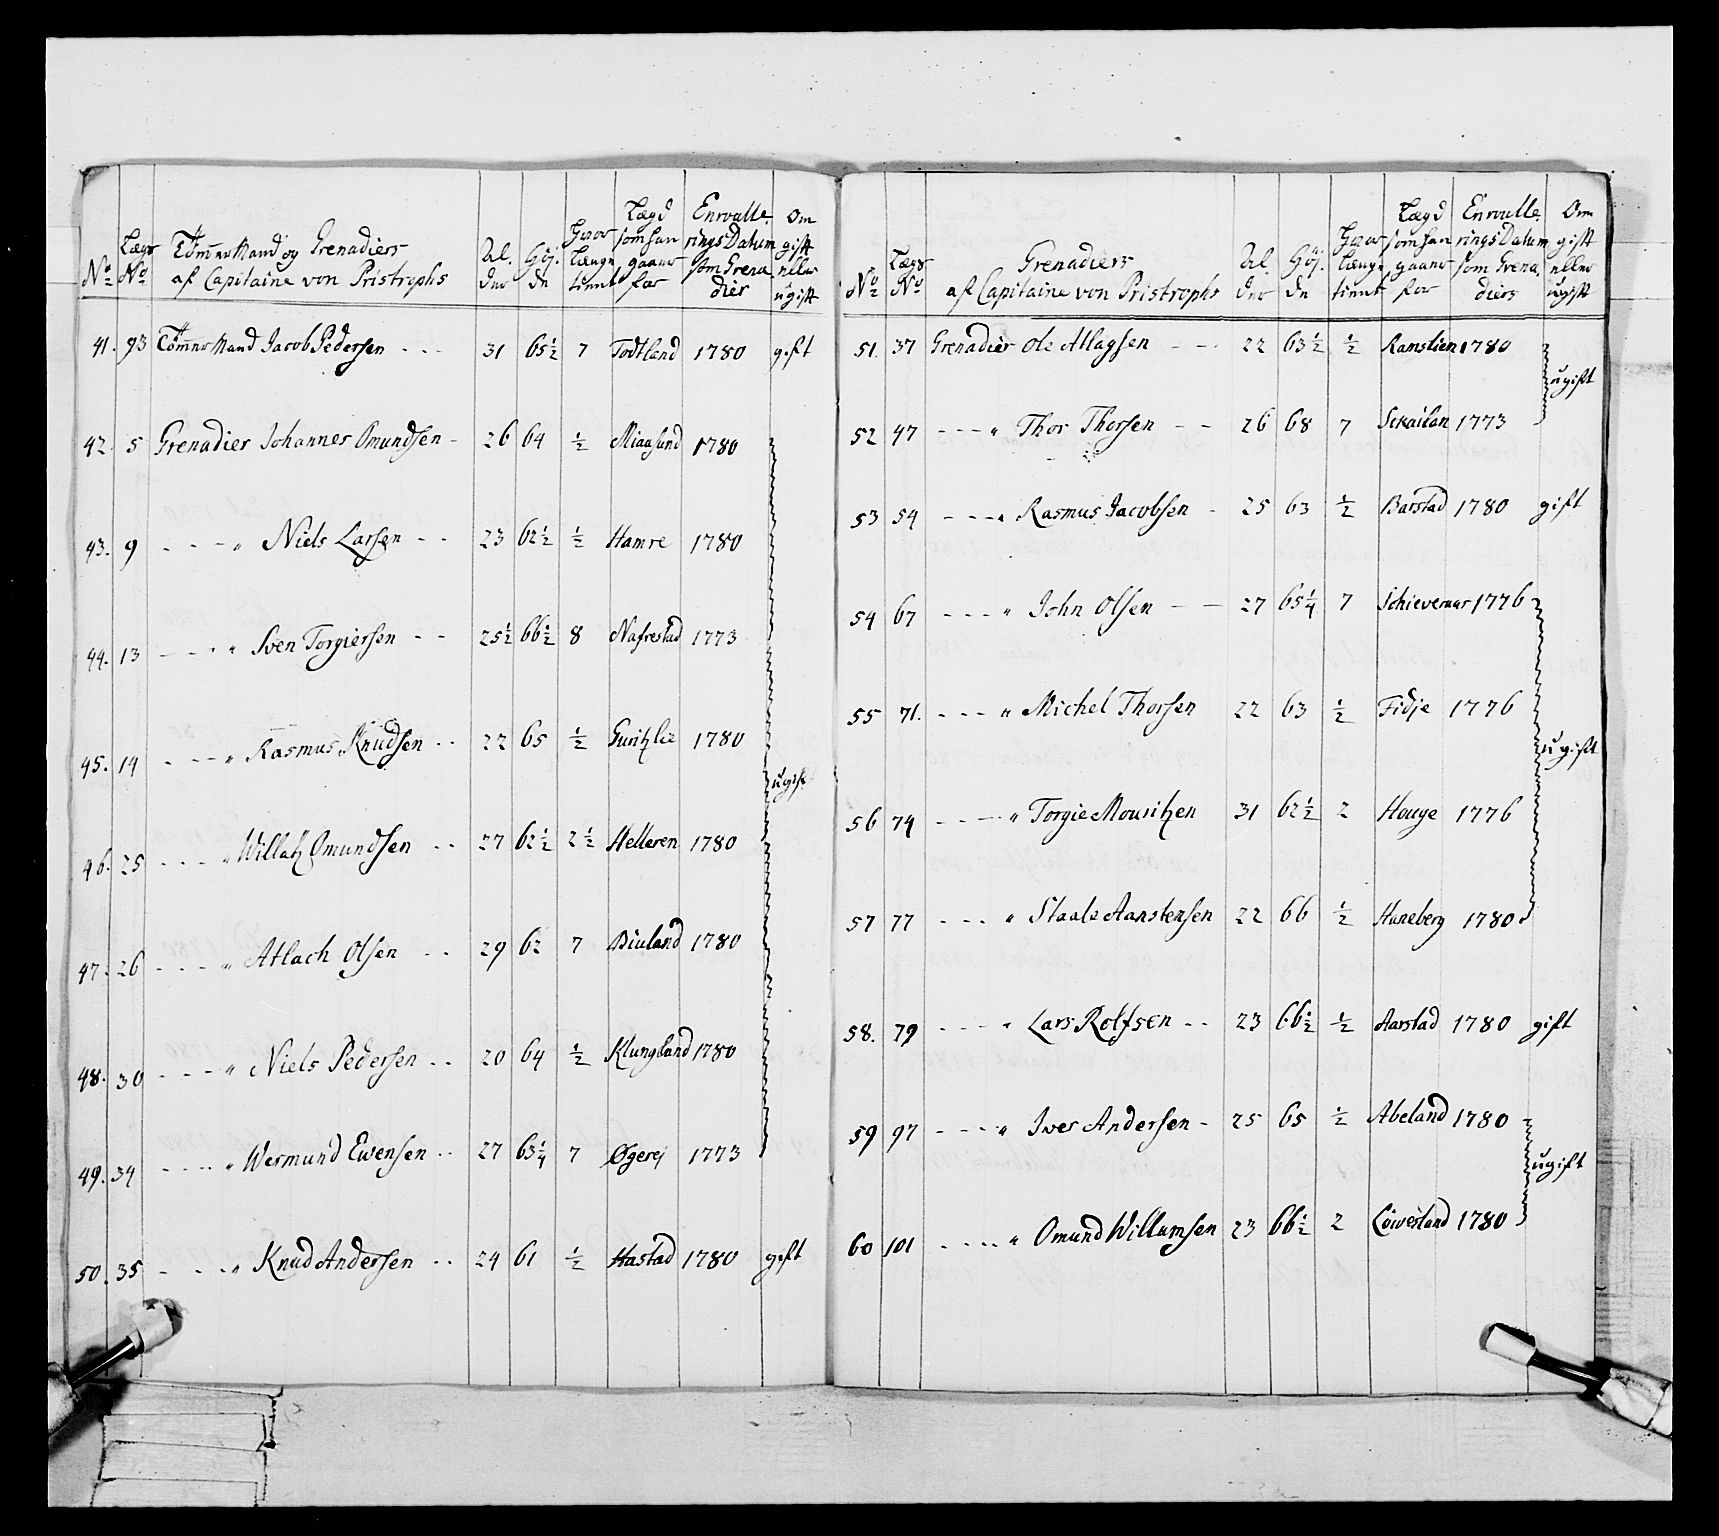 No
Lægs No
Tømmermand og Grenadiers
af Capitaine von Pristrophs
Al. der
Høj. de
Hvor længe tient
Lægd som han gaaer for
Enroulle rings Datum som Grena dier
Om gift eller ugift
41. 93 Tømmermand Jacob Pedersen - - - 31 65½ 7 Todtland 1780 gift
42. 5 Grenadier Johannes Omundsen - 26 64 ½ Miaasund 1780
43. 9 - - - „ Niels Larsen - - 23 62½ ½ Hamre 1780
44. 13 - - - „ Sven Torgiersen - - 25½ 66½ 8 Nafrestad 1773
45. 14 - - - „ Rasmus Knudsen - - 22 65 ½ Guritzlie 1780
ugift
46. 25 - - - „ Willatz Omundsen - - 27 62½ 2½ Helleren 1780
47. 26 - - - „ Atlach Olsen - - 29 62 7 Biuland 1780
48. 30 - - - „ Niels Pedersen - - 20 64 ½ Klungland 1780
49. 34 - - - „ Wermund Evensen - - 27 63¼ 7 Øgerej 1773
50. 35 - - - „ Knud Andersen - - 24 61 ½ Hastad 1780 gift
No
Lægs No
Grenadiers
af Capitaine von Pristrophs
Al. der
Høj. de
Hvor længe tient
Lægd som han gaaer for
Enroulle rings Datum som Grena diers
Om gift eller ugift
51. 37 Grenadier Ole Atlagsen - - - 22 63½ ½ Ramslien 1780
ugift
52 47 - - - „ Thor Thorsen - - 26 68 7 Sckailan 1773
53 54 - - - „ Rasmus Jacobsen - 25 63 ½ Barstad 1780 gift
54 67 - - - „ John Olsen - - 27 65¼ 7 Schieveraas 1776
55 71. - - - „ Michel Thorsen 22 63 ½ Fidje 1776
ugift
56 74 - - - „ Torgie Mouritzen 31 62½ 2 Houge 1776
57 77 - - - „ Staale Aanstensen 22 66 ½ Haneberg 1780
58. 79 - - - „ Lars Rolfsen - - 23 66½ ½ Aarstad 1780 gift
59 97 - - - „ Iver Andersen - 25 65 ½ Abeland 1780
ugift
60 101 - - - „ Omund Willumsen 23 66½ 2 Løvesland 1780